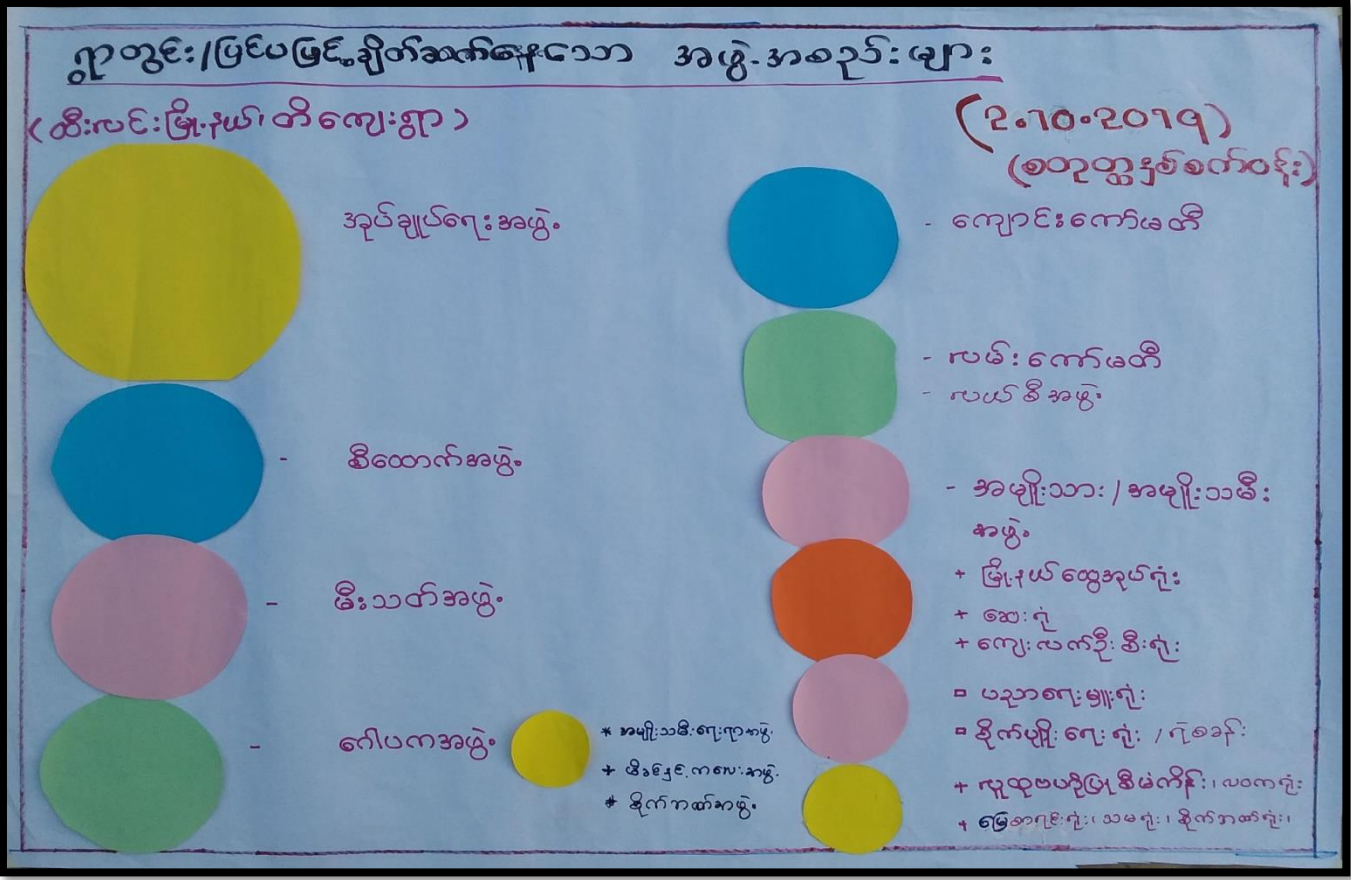 ရွာတွင်း/ပြင်ပဖြင့်ချိတ်ဆက်နေသော အဖွဲ့အစည်းများ
(ထီးလင်းမြို့နယ်၊ တီကျေးရွာ)
(2.10.2019)
(စတုတ္ထနှစ်စက်ဝန်း)
အုပ်ချုပ်ရေးအဖွဲ့
- စီထောက်အဖွဲ့
- မီးသတ်အဖွဲ့
- ဂေါပကအဖွဲ့
* အမျိုးသမီးရေးရာအဖွဲ့
+ မိခင်နှင့်ကလေးအဖွဲ့
* စိုက်ဘဏ်အဖွဲ့
- ကျောင်းကော်မတီ
- လမ်းကော်မတီ
- လယ်စီအဖွဲ့
- အမျိုးသား/အမျိုးသမီး
အဖွဲ့
+ မြို့နယ်ထွေအုပ်ရုံး
+ ဆေးရုံ
+ ကျေးလက်ဦးစီးရုံး
▫ ပညာရေးမှူးရုံး
▫ စိုက်ပျိုးရေးရုံး /ရဲစခန်း
+ လူထုဗဟိုပြုစီမံကိန်း၊ လဝကရုံး
+ မြေစာရင်းရုံး၊ သမရုံး၊ စိုက်ဘဏ်ရုံး၊